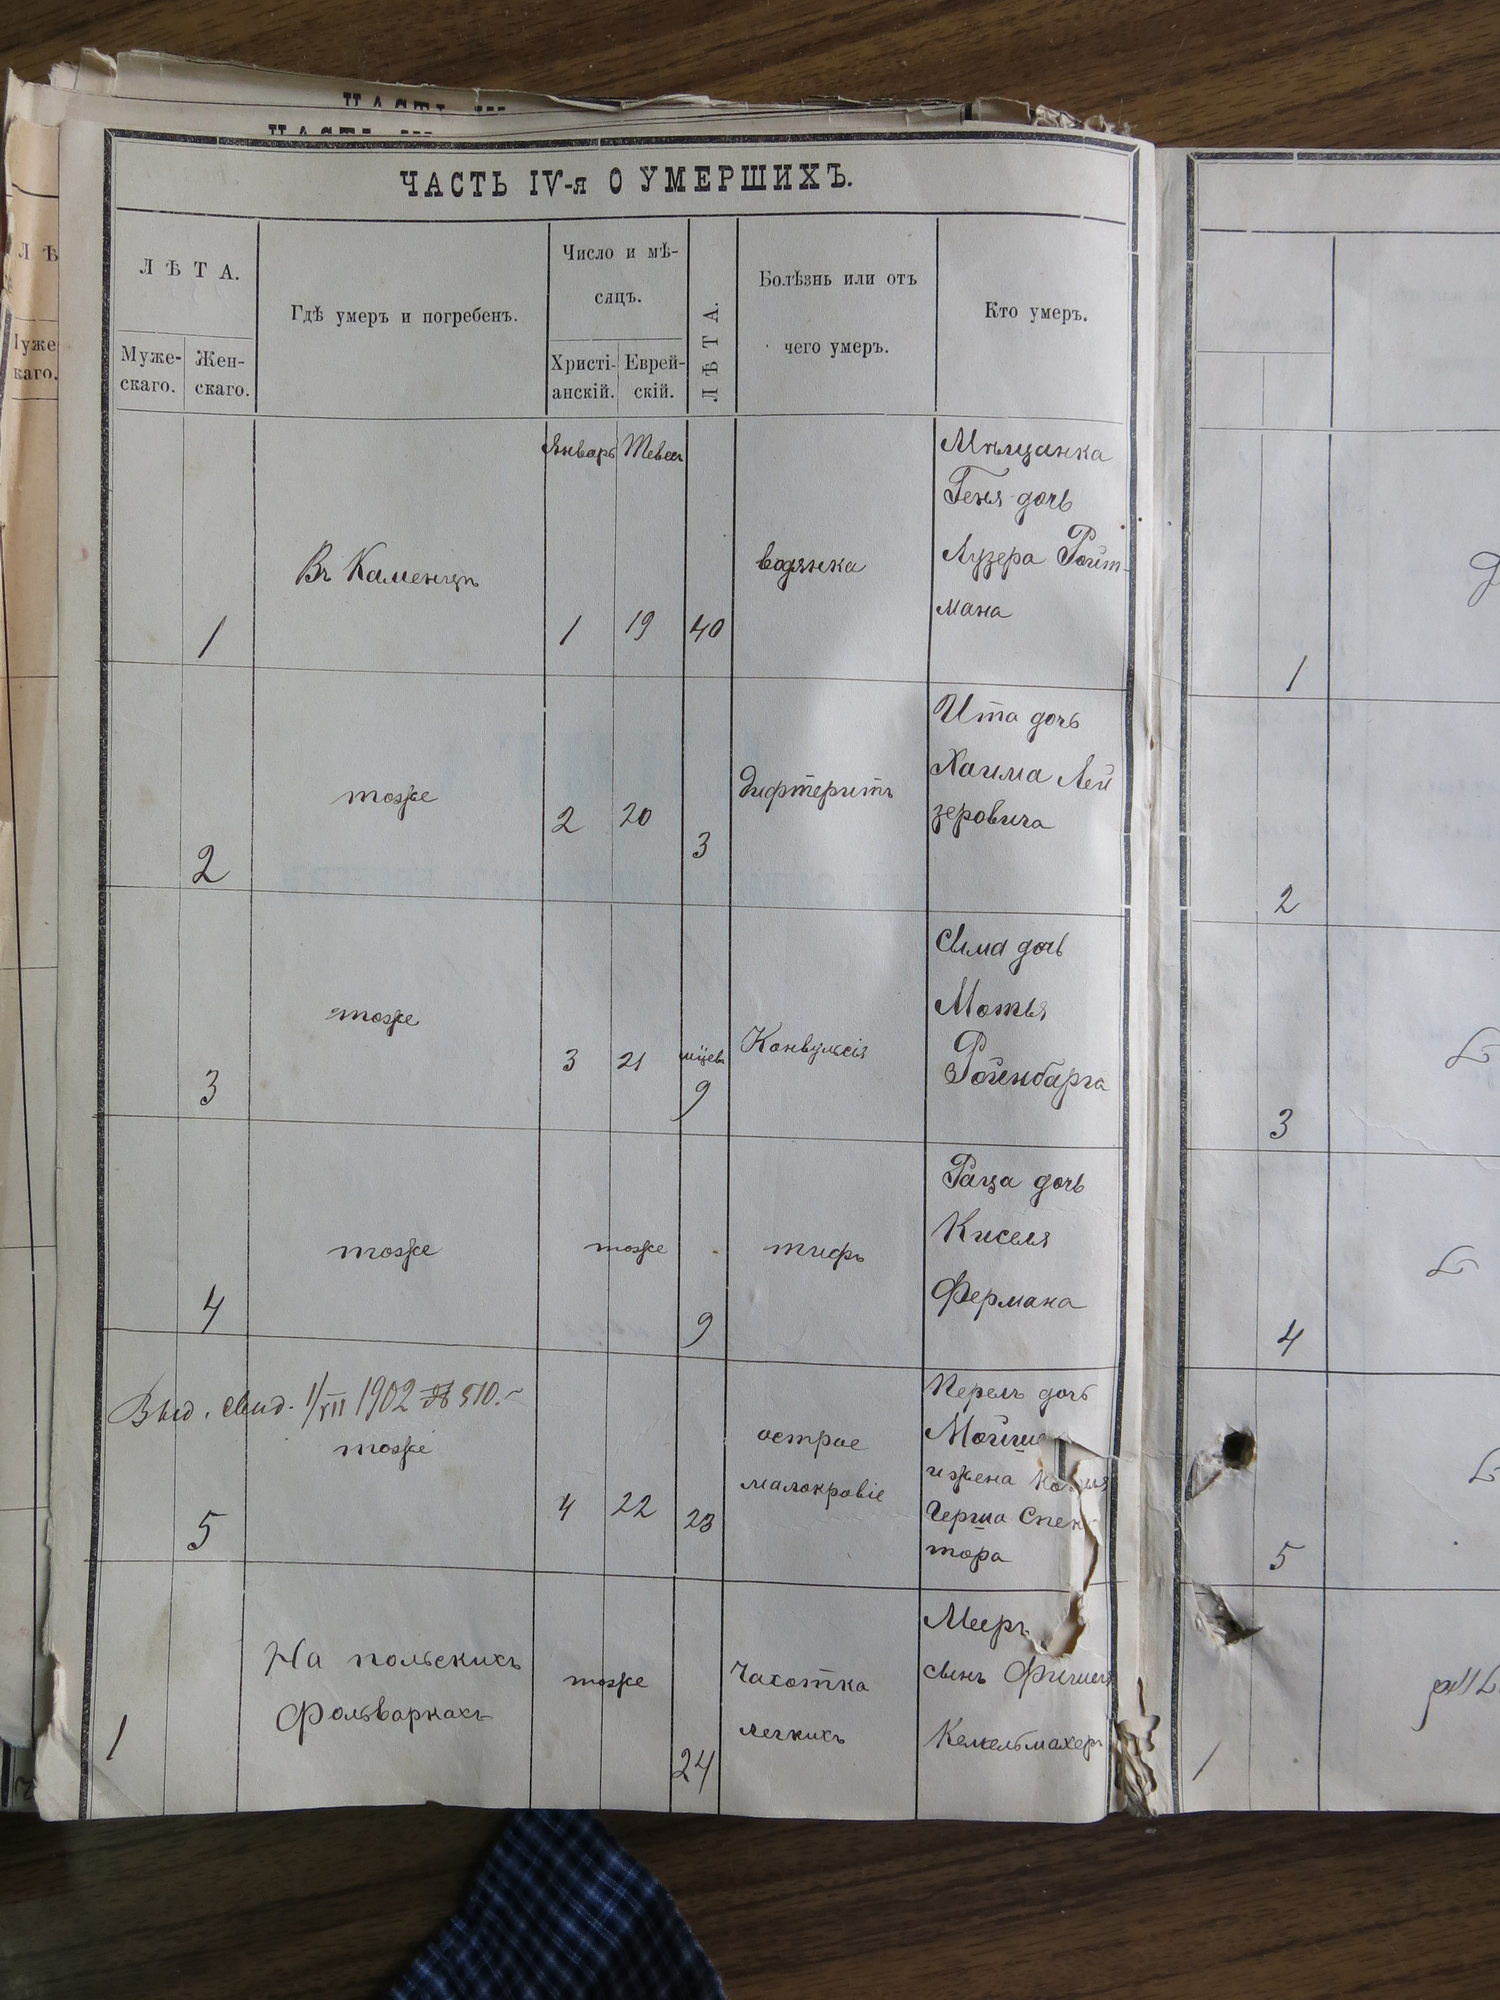 ЧАСТЬ IV-я О УМЕРШИХЪ.
ЛѢТА.
Муже-
скаго.
Жен-
скаго.
Гдѣ умеръ и погребенъ.
Число и мѣ-
сяцъ.
Христі-
анскій.
Еврей-
скій.
ЛѢТА.
Болѣзнь или отъ
чего умеръ.
Кто умеръ.
Январь Тевес
1
Въ Каменцѣ
1 19 40
водянка
Мѣщанка
Геня дочь
Лузера Ройт-
мана
2
тоже
2 20
3
дифтеритъ
Ита дочь
Хаима Лей
зеровича
3
тоже
3 21
9
Конвульсія
Сима дочь
Мотья
Ройенбарга
4
тоже
тоже
9
тифъ
Раца дочь
Киселя
Фермана
Выд. свид. 1/VII 1902 № 510.
5
тоже
4 22 23
острое
малокровіе
Перель дочь
Мойше
и жена
Герша Спек
тора
1
На польскихъ
Фольваркахъ
тоже
24
Чахотка
легкихъ
Мееръ
сынъ Фишеля
Кемельмахеръ
1
2
3
4
5
1